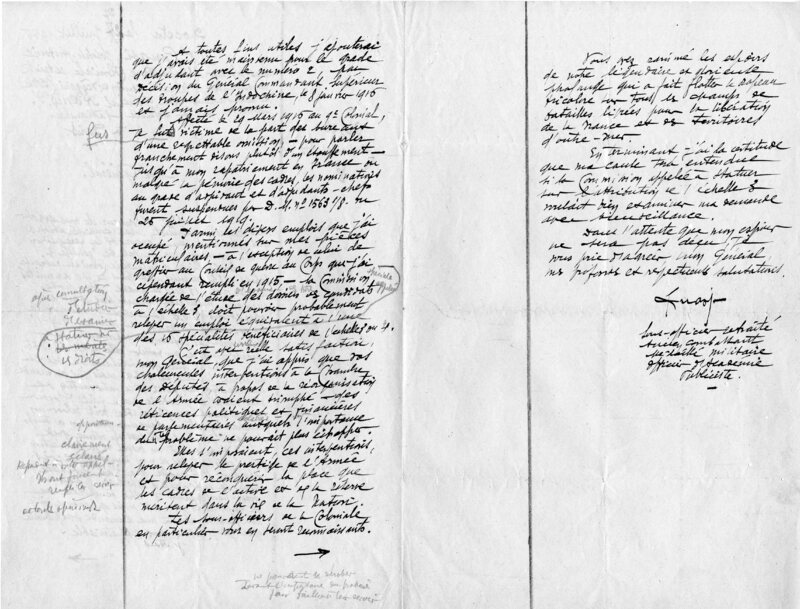 A toutes fins utiles j'ajouterai
que j'avais été maintenu pour le grade
d'adjudant avec le numéro 2, par
décision du Général Commandant Supérieur
des troupes de l'Indochine, le 8 janvier 1915
et jamais promu.
Affecté le 29 Mars 1915 au 9e Colonial,
fus
victime de la part des bureaux
d'une regrettable omission – pour parler
franchement disons plutôt d'un étouffement –
jusqu'à mon rapatriement en France où
malgré la pénurie des cadres, les nominations
au grade d'aspirant et d'adjudants-chefs
furent suspendues par D.M. n° 1563/8 du
26 1919.
Parmi les divers emplois que j'ai
occupé mentionnés sur mes pièces
matriculaires, – à l'exception de celui de
greffier au Conseil de guerre du Corps que j'ai
cependant rempli en 1915 – la Commission
chargée de l'étude des dossiers des candidats
à l'échelle 3, doit pouvoir probablement
relever un emploi équivalent à l'une
des 10 spécialités bénéficiaires de l'échelle 3 ou 4.
C'est avec réelle satisfaction,
mon Général que j'ai appris que vos
chaleureuses interventions à la Chambre
des députés à propos de la réorganisation
de l'Armée avaient triomphé des
réticences politiques et financières
de parlementaires auxquels l'importance
du problème ne pouvait plus échapper.
Elles s'imposaient, ces interventions,
pour relever le prestige de l'Armée
et pour reconquérir la place que
les cadres de l'active et de la réserve
méritent dans la vie de la Nation.
Les Sous-officiers de la Coloniale
en particulier vous en seront reconnaissants.
→
clairement
ne pouvaient se dérober
Vous avez ranimé les espoirs
de notre légendaire et glorieuse
phalange qui a fait flotter le drapeau
tricolore sur tous les champs de
batailles livrées pour la libération
de la France et des territoires
d'outre-mer.
En terminant j'ai la certitude
que ma cause sera entendue
si la Commission appelée à statuer
sur l'attribution de l'échelle 3
voulait bien examiner ma demande
avec bienveillance.
Dans l'attente que mon espoir
ne sera pas déçu, je
vous prie d'agréer mon Général
mes profondes et respectueuses salutations.
Sous-officier retraité
Ancien combattant
Médaille militaire
Officier d'Académie
Publiciste.